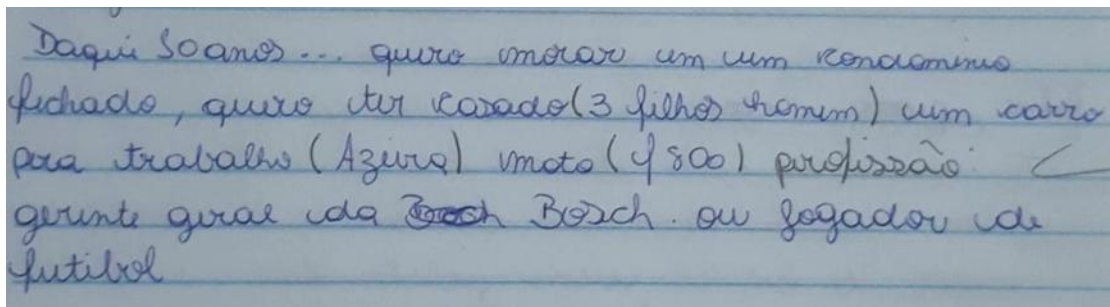 Daqui 10 anos... quero morar em um condominio
fechado, quero ter casado (3 filhos homem) um carro
para trabalho (Azera) moto (f 800) profissão:
gerente geral da Bosch. ou jogador de
futibol